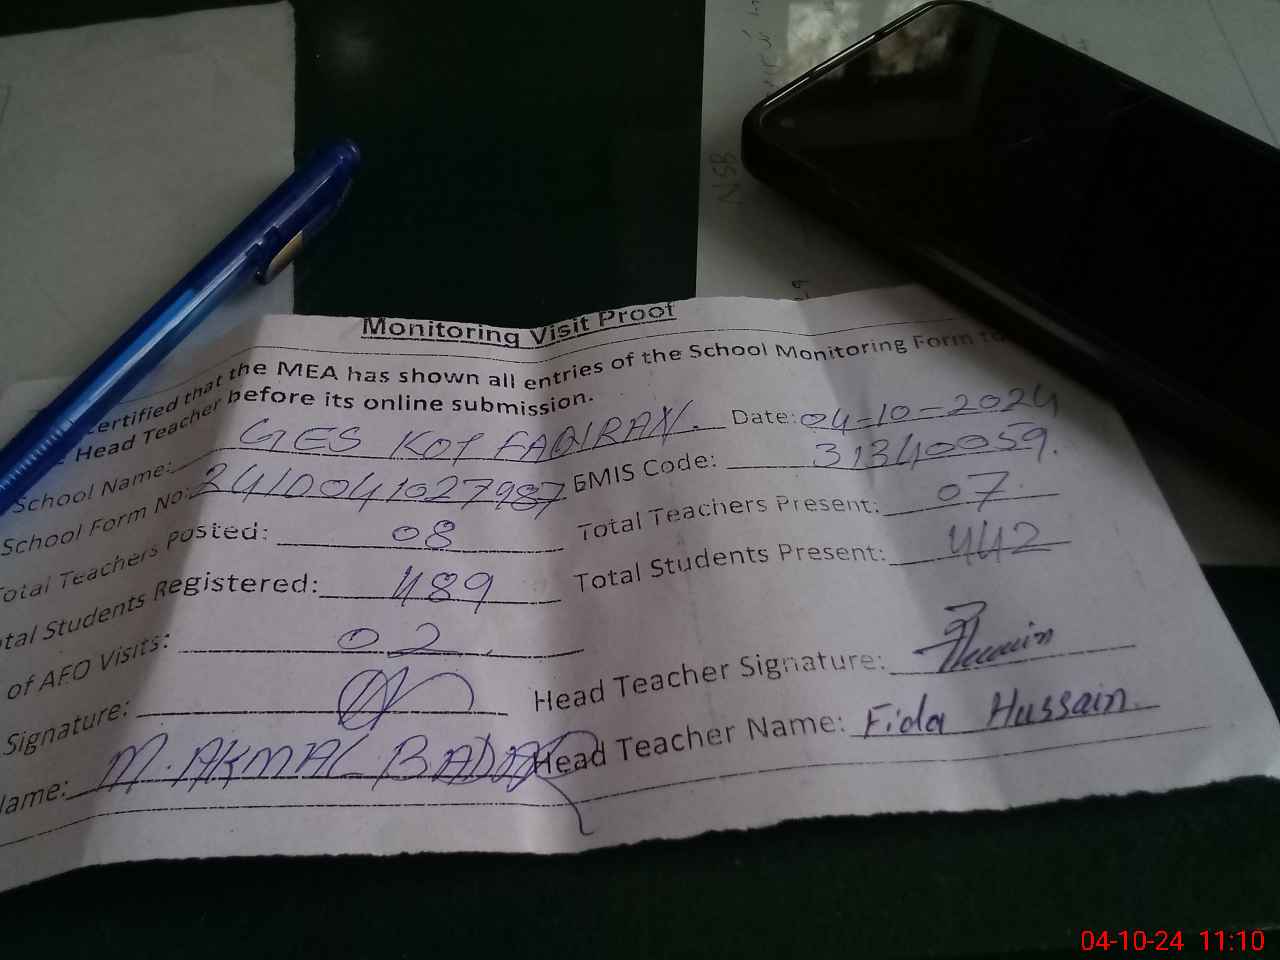 Monitoring Visit Proof
ertified that the MEA has shown all entries of the School Monitoring Form to
Head Teacher before its online submission.
School Name: GES KOT FAQIRAN. Date: 04-10-2024
School Form No: 2410041027987 EMIS Code: 31340059.
Total Teachers Posted: 08 Total Teachers Present: 07
tal Students Registered: 489 Total Students Present: 442
of AFO Visits: 02
Signature: Head Teacher Signature: Hussain
Name: M. AKMAL Head Teacher Name: Fida Hussain
NSB
04-10-24 11:10